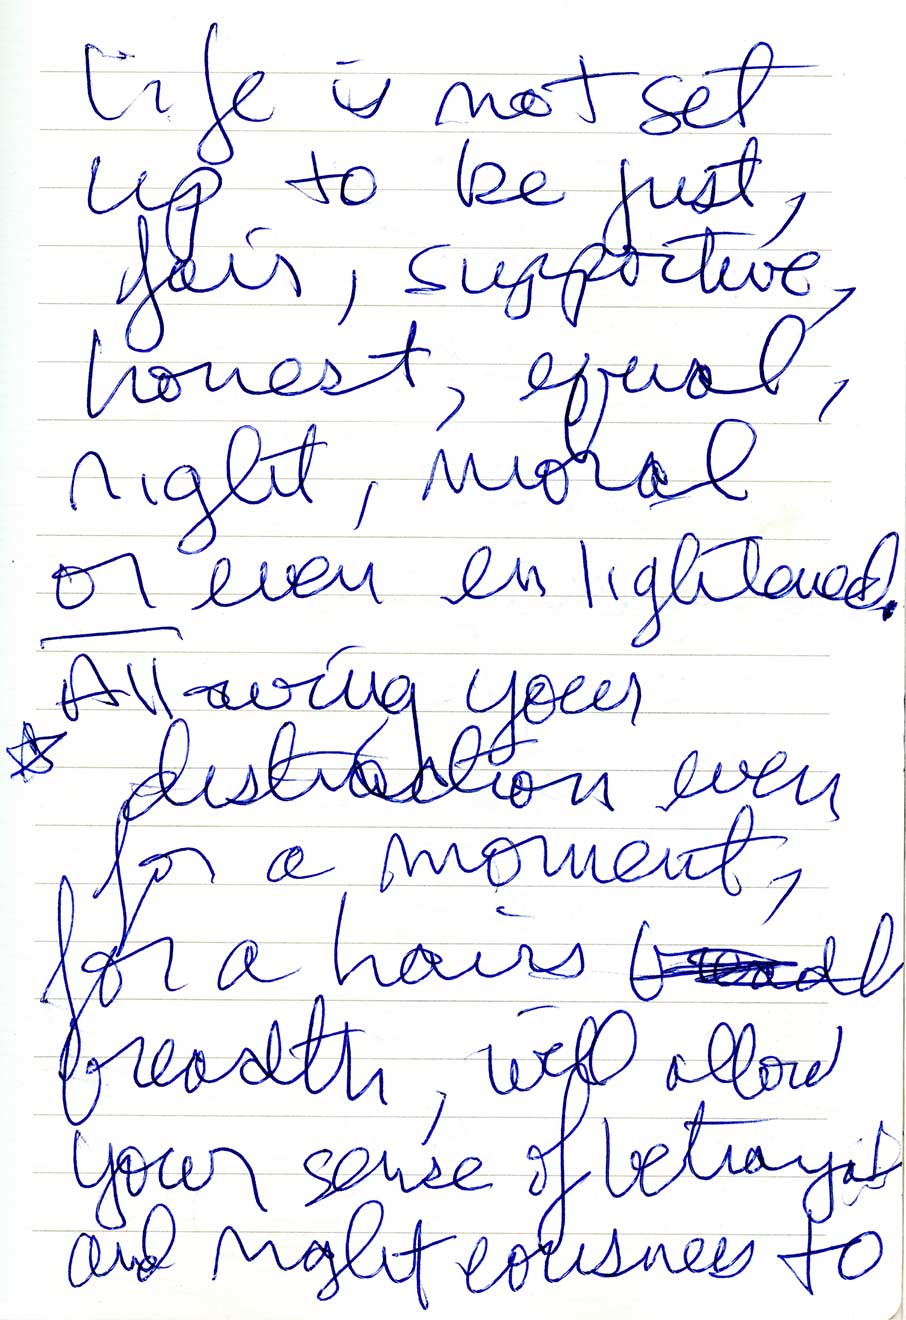 Life is not set
up to be just,
fair, supportive,
honest, equal,
right, moral
or even enlightened.
Allowing your
distraction even
for a moment,
for a hairs
breadth, will allow
your sense of betrayal
and righteousness to